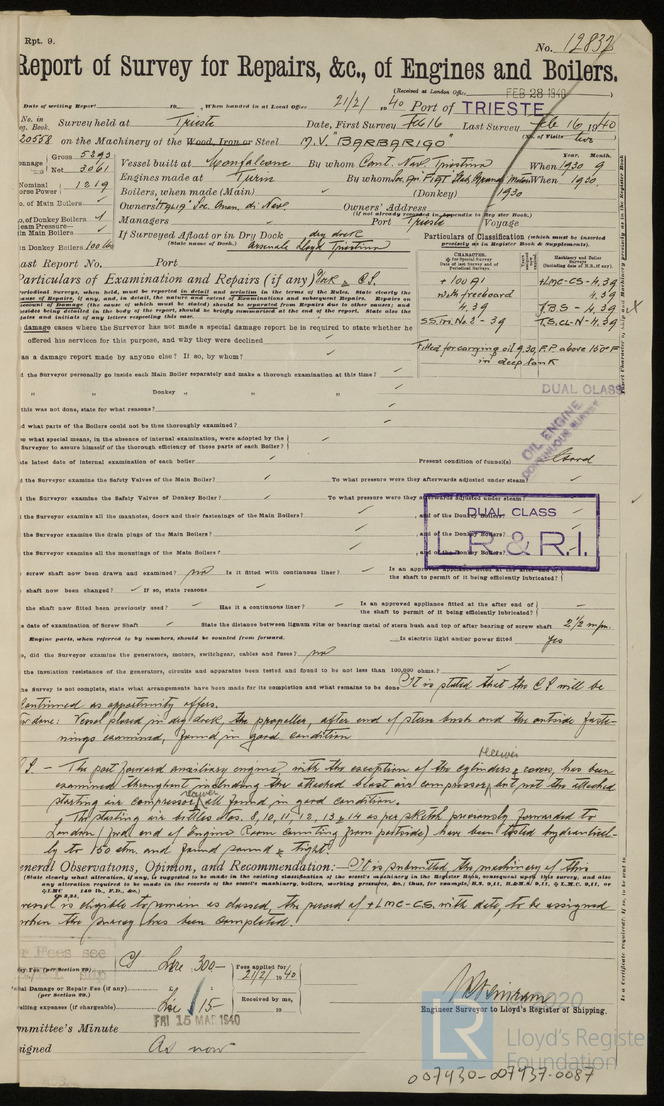 Rpt. 9.
No. 12832
Report of Survey for Repairs, &c., of Engines and Boilers.
(Received at London Office FEB 28 1940)
Date of writing Report 19 When handed in at Local Office 21/2/ 1940 Port of TRIESTE
No. in Survey held at Trieste Date, First Survey Feb 16 Last Survey Feb 16 1940
g. Book. (No. of Visits two)
20558 on the Machinery of the Wood, Iron or Steel M.V. "BARBARIGO"
onnage Gross 5293 Net 3061 Vessel built at Monfalcone By whom Cant. Nav. Triestino When 1930 9
Year. Month.
Nominal orse Power 1219 Engines made at Turin By whom When 1930
o. of Main Boilers Boilers, when made (Main) (Donkey) 1930
o. of Donkey Boilers 1 Owners Soc. Anon. di Nav. Owners' Address
(if not already recorded in Appendix to Reg. Book.)
eam Pressure— in Main Boilers Managers Port Trieste Voyage
in Donkey Boilers 100 lbs If Surveyed Afloat or in Dry Dock dry dock
(State name of Dock.) Arsenale Lloyd Triestino
Particulars of Classification (which must be inserted precisely as in Register Book & Supplements).
ast Report No. Port
CHARACTER. for Special Survey Date of last Survey and of Periodical Surveys.
Machinery and Boiler Surveys (including date of N.B., if any).
+ 100 A1 +LMC-CS-4,39
with freeboard 4,39
4,39 T.B.S - 4,39
S.S. Tri. No. 2 - 39 T.S. CL-N-4,39
Fitted for carrying oil 9,30, F.P. above 150°F in deep tank
Particulars of Examination and Repairs (if any) Dock & C.S.
damage cases where the Surveyor has not made a special damage report he is required to state whether he
offered his services for this purpose, and why they were declined
as a damage report made by anyone else? If so, by whom?
d the Surveyor personally go inside each Main Boiler separately and make a thorough examination at this time?
" " Donkey " " "
DUAL CLASS
this was not done, state for what reasons?
OIL ENGINE
CONTINUOUS SURVEY
d what parts of the Boilers could not be thus thoroughly examined?
o what special means, in the absence of internal examination, were adopted by the
Surveyor to assure himself of the thorough efficiency of those parts of each Boiler?
te latest date of internal examination of each boiler Present condition of funnel(s) Good
d the Surveyor examine the Safety Valves of the Main Boiler? To what pressure were they afterwards adjusted under steam?
d the Surveyor examine the Safety Valves of Donkey Boiler? To what pressure were they afterwards adjusted under steam?
the Surveyor examine all the manholes, doors and their fastenings of the Main Boilers? , and of the Donkey Boilers?
DUAL CLASS
L.R & R.I.
the Surveyor examine the drain plugs of the Main Boilers? , and of the Donkey Boilers?
the Surveyor examine all the mountings of the Main Boilers? , and of the Donkey Boilers?
screw shaft now been drawn and examined? no Is it fitted with continuous liner? Is an approved appliance fitted at the after end of the shaft to permit of it being efficiently lubricated?
shaft now been changed? If so, state reasons
the shaft now fitted been previously used? Has it a continuous liner? Is an approved appliance fitted at the after end of the shaft to permit of it being efficiently lubricated?
e date of examination of Screw Shaft State the distance between lignum vitæ or bearing metal of stern bush and top of after bearing of screw shaft 2 1/2 mm.
Engine parts, when referred to by numbers, should be counted from forward. Is electric light and/or power fitted yes
o, did the Surveyor examine the generators, motors, switchgear, cables and fuses? no
the insulation resistance of the generators, circuits and apparatus been tested and found to be not less than 100,000 ohms?
he Survey is not complete, state what arrangements have been made for its completion and what remains to be done It is stated that the C.S. will be
continued as opportunity offers.
w done: Vessel placed in dry dock, the propeller, after end of stern bush and the outside faste-
nings examined, found in good condition
C.S. — The port forward auxiliary engine, with the exception of the cylinders & covers, has been
examined throughout including the attached blast air compressor, but not the attached
starting air compressor, all found in good condition.
The starting air bottles Nos. 8, 10, 11, 12, 13 & 14 as per sketch previously forwarded to
London (fwd. end of Engine Room counting from portside) have been tested hydraulical-
ly to 150 atm. and found sound & tight.
eneral Observations, Opinion, and Recommendation:— It is submitted, the machinery of this
vessel is eligible to remain as classed, the record of +LMC-CS. with date, to be assigned
when the survey has been completed.
ey Fee (per Section 29) CS Lire 300— Fees applied for 21/2/ 1940
ial Damage or Repair Fee (if any) (per Section 29.)
velling expenses (if chargeable) Lire 15— Received by me, 19
Engineer Surveyor to Lloyd's Register of Shipping.
FRI 15 MAR 1940
mmittee's Minute
signed As now
© 2020
LR
Lloyd's Register
Foundation
007430-007437-0087